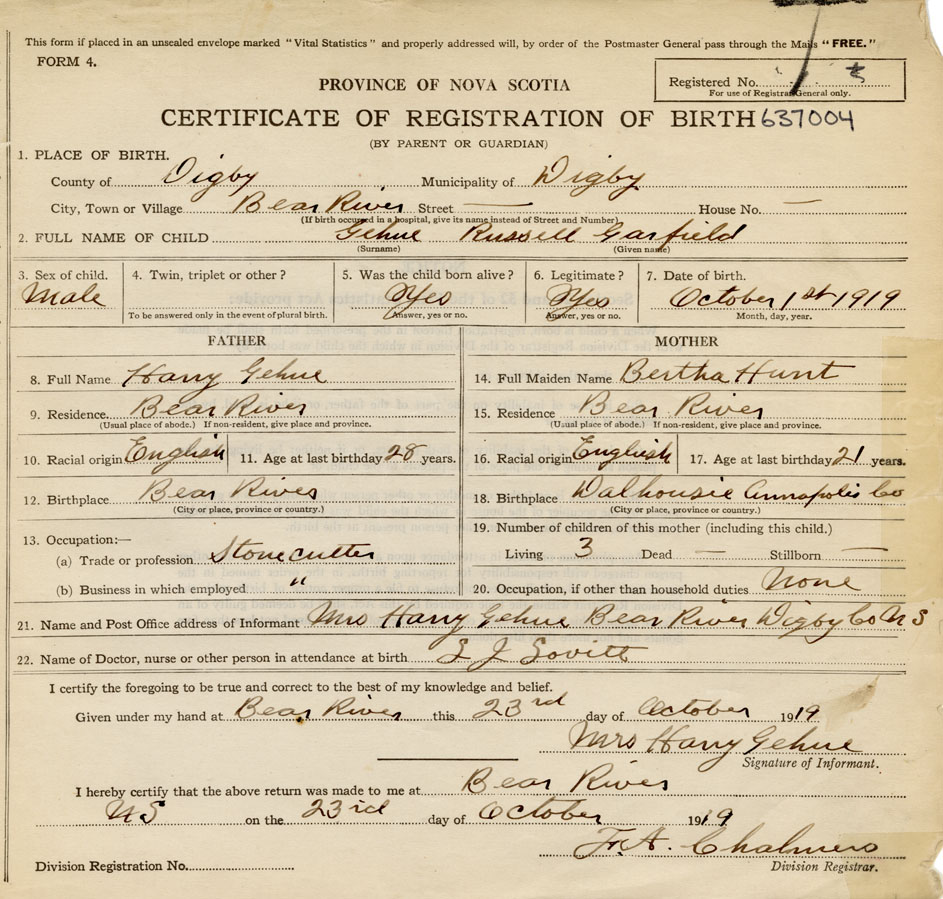 This form if placed in an unsealed envelope marked "Vital Statistics" and properly addressed will, by order of the Postmaster General pass through the Mails "FREE."
FORM 4.
Registered No.
For use of Registrar General only.
PROVINCE OF NOVA SCOTIA
CERTIFICATE OF REGISTRATION OF BIRTH 637004
(BY PARENT OR GUARDIAN)
1. PLACE OF BIRTH.
County of Digby Municipality of Digby
City, Town or Village Bear River Street — House No. —
(If birth occured in a hospital, give its name instead of Street and Number)
2. FULL NAME OF CHILD Gehue Russell Garfield
(Surname) (Given name)
3. Sex of child. 4. Twin, triplet or other? 5. Was the child born alive? 6. Legitimate? 7. Date of birth.
Male Yes Yes October 1st 1919
To be answered only in the event of plural birth. Answer, yes or no. Answer, yes or no. Month, day, year.
FATHER MOTHER
8. Full Name Harry Gehue 14. Full Maiden Name Bertha Hunt
9. Residence. Bear River 15. Residence Bear River
(Usual place of abode.) If non-resident, give place and province. (Usual place of abode.) If non-resident, give place and province.
10. Racial origin English 11. Age at last birthday 28 years. 16. Racial origin English 17. Age at last birthday 21 years.
12. Birthplace Bear River 18. Birthplace Dalhousie Annapolis Co
(City or place, province or country.) (City or place, province or country.)
13. Occupation:— 19. Number of children of this mother (including this child.)
(a) Trade or profession Stonecutter Living 3 Dead — Stillborn —
(b) Business in which employed " 20. Occupation, if other than household duties None
21. Name and Post Office address of Informant Mrs Harry Gehue Bear River Digby Co N S
22. Name of Doctor, nurse or other person in attendance at birth L J Lovitt
I certify the foregoing to be true and correct to the best of my knowledge and belief.
Given under my hand at Bear River this 23rd day of October 1919
Mrs Harry Gehue
Signature of Informant.
I hereby certify that the above return was made to me at Bear River
N S on the 23rd day of October 1919
F. A. Chalmers
Division Registration No. Division Registrar.